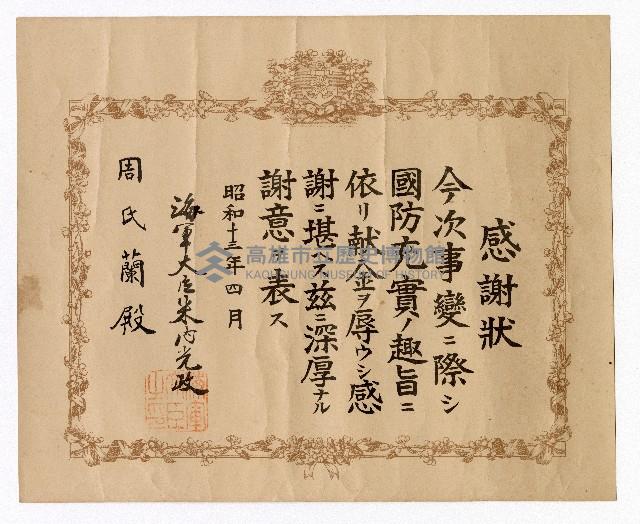 感謝狀
今次事變ニ際シ
國防充實ノ趣旨ニ
依リ献金ヲ辱ウシ感
謝ニ堪ヘス茲ニ深厚ナル
謝意ヲ表ス
昭和十三年四月
海軍大臣米内光政
周氏蘭殿
高雄市立歷史博物館
KAOHSIUNG MUSEUM OF HISTORY